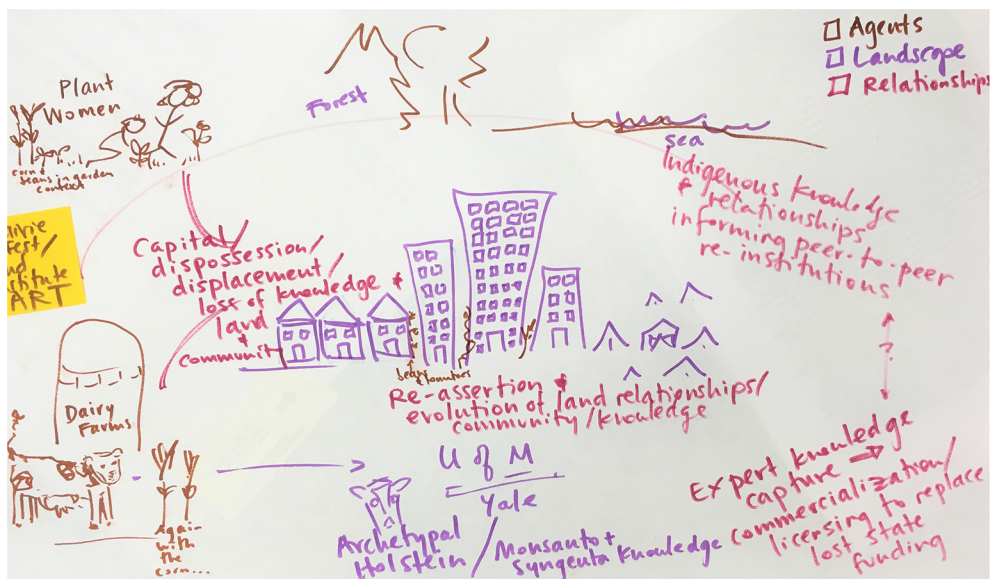 Agents
Landscape
Relationships
Plant
Women
corn &
beans in garden
context
Forest
sea
Indigenous Knowledge
& relationships
informing peer-to-peer
re-institutions
ART
Capital/
dispossession/
displacement/
loss of knowledge &
land
&
community
beans tomatoes
Re-assertion &
evolution of land relationships/
community/knowledge
?
Dairy
Farms
Again
with
the
corn...
U of M
Yale
Archetypal
Holstein
/ Monsanto +
Syngenta Knowledge
Expert knowledge
capture →
commercialization/
licensing to replace
lost state
funding